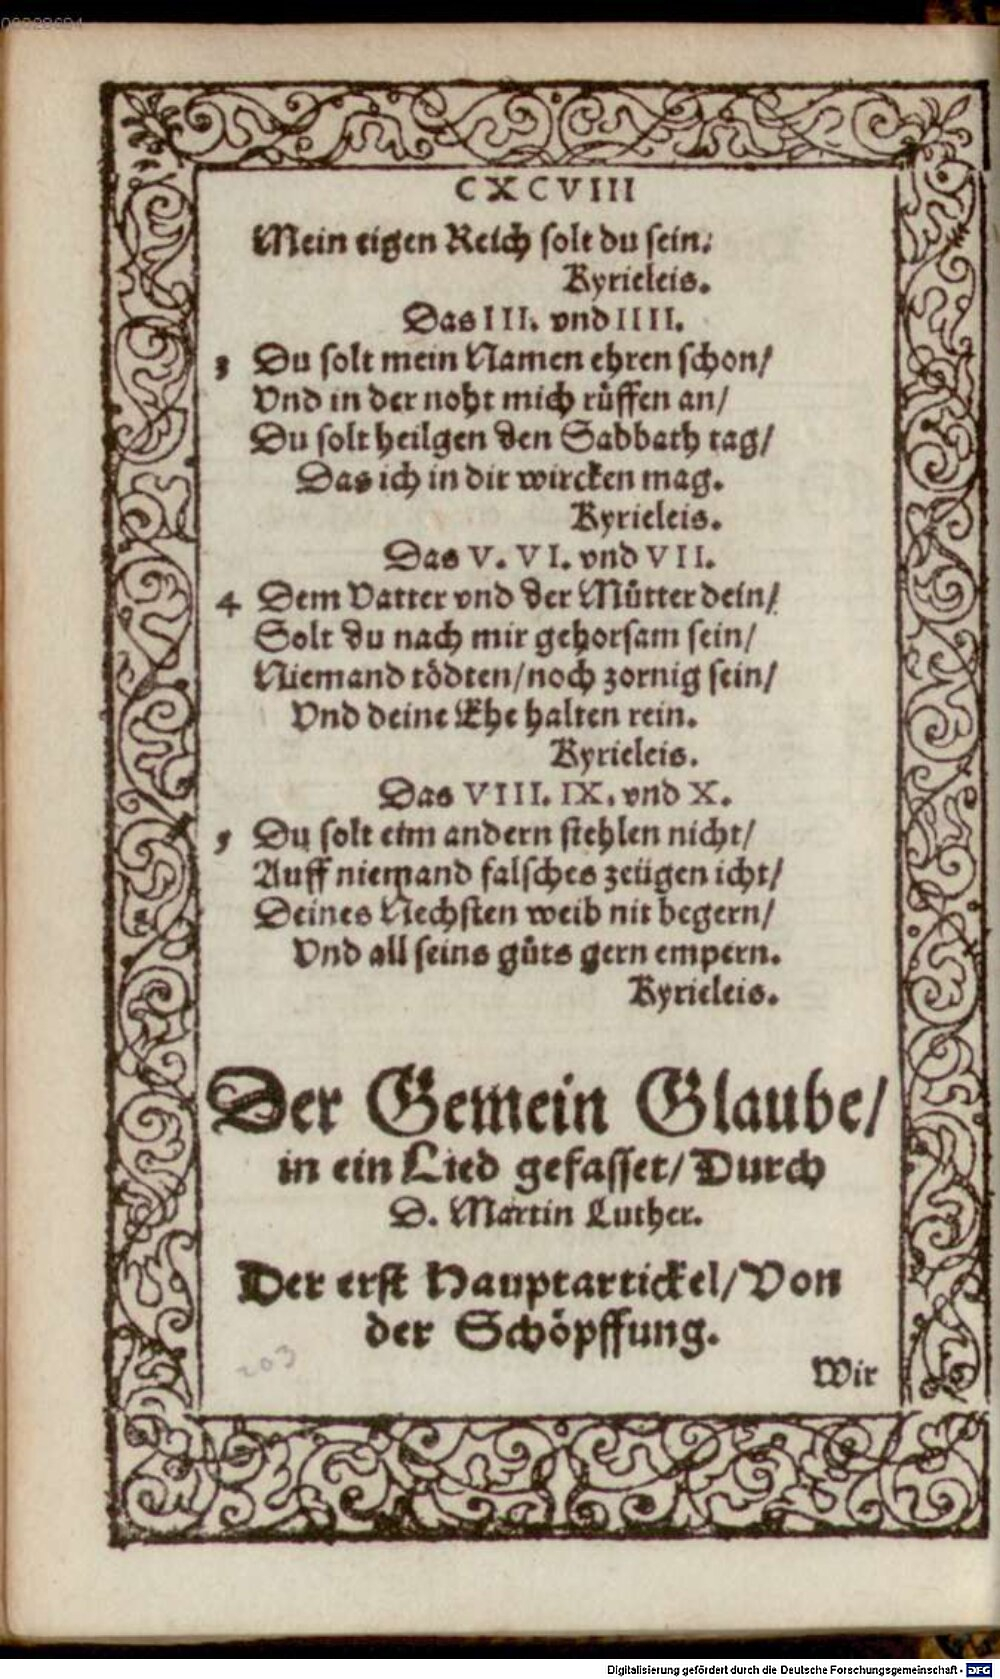 00328694
CXCVIII
Mein eigen Reich solt du sein:
Kyrieleis.
Das III. vnd IIII.
3 Du solt mein Namen ehren schon/
Vnd in der noht mich rüffen an/
Du solt heilgen den Sabbath tag/
Das ich in dir wircken mag.
Kyrieleis.
Das V. VI. vnd VII.
4 Dem Vatter vnd der Mütter dein/
Solt du nach mir gehorsam sein/
Niemand tödten/noch zornig sein/
Vnd deine Ehe halten rein.
Kyrieleis.
Das VIII. IX. vnd X.
5 Du solt eim andern stehlen nicht/
Auff niemand falsches zeügen icht/
Deines Nechsten weib nit begern/
Vnd all seins güts gern empern.
Kyrieleis.
Der Gemein Glaube/
in ein Lied gefasset/Durch
D. Martin Luther.
Der erst Hauptartickel/Von
der Schöpffung.
203
Wir
Digitalisierung gefördert durch die Deutsche Forschungsgemeinschaft - DFG